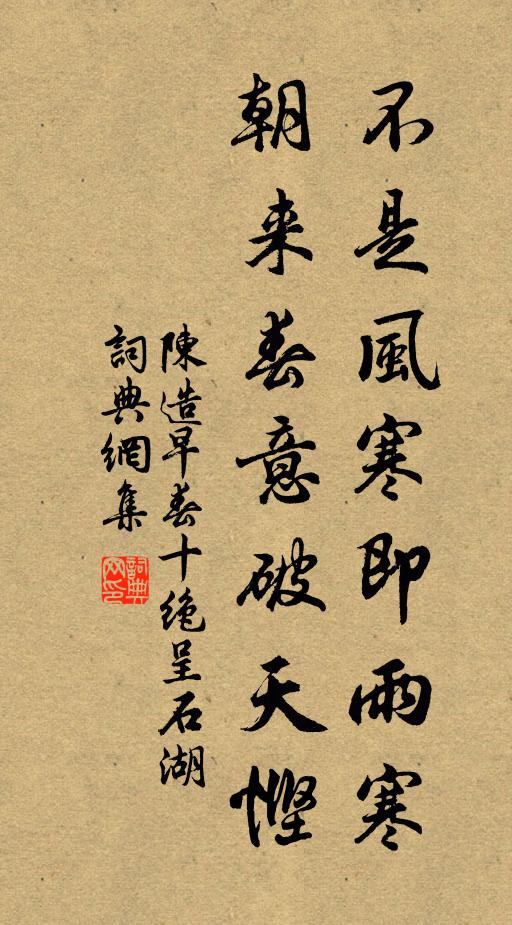 不是風寒即雨寒
朝来春意破天慳
陳造早春十絶呈石湖
詞典網集
詞典網印